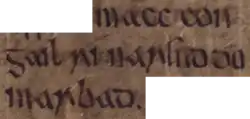 macc con
gail ri narlid do
marbad.